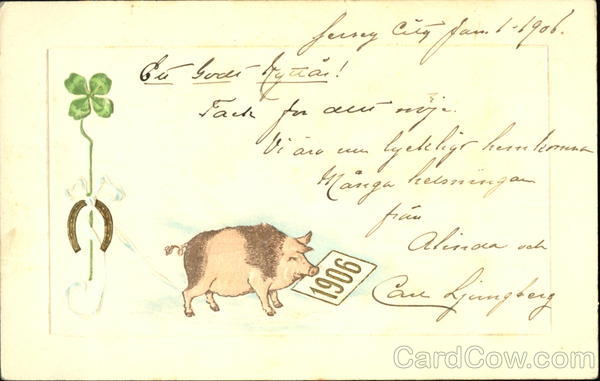 Jersey City Jan. 1-1906.
Ett Godt Nyttår!
Tack for det nöje.
Vi äro nu lyckligt hemkomna
Många helsningar
från
Alinda och
Carl Ljungberg
1906
CardCow.com